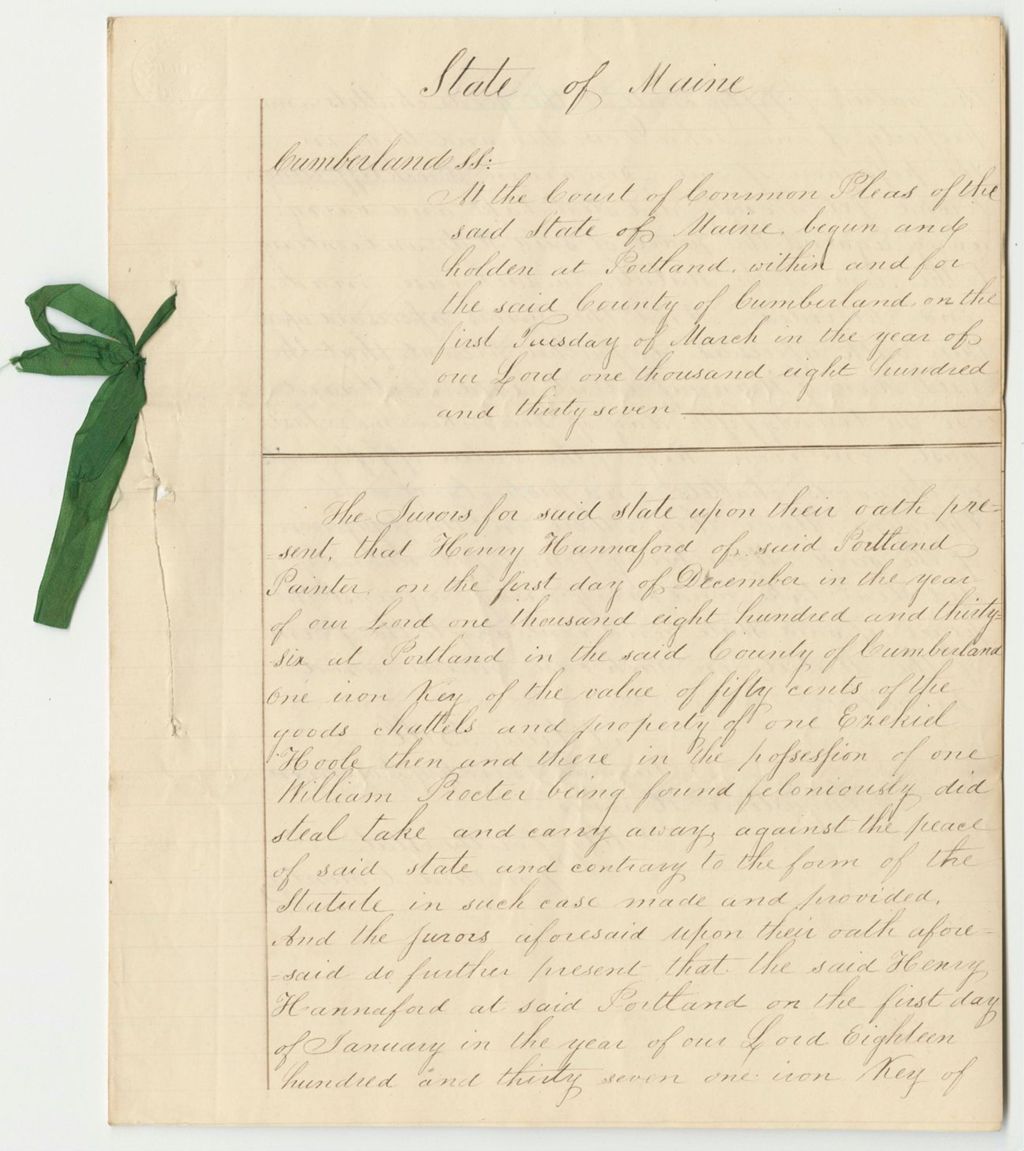 State of Maine
Cumberland ss:
At the Court of Common Pleas of the
said State of Maine, begun and
holden at Portland, within and for
the said County of Cumberland, on the
first Tuesday of March in the year of
our Lord one thousand eight hundred
and thirty seven
The Jurors for said state upon their oath pre-
-sent, that Henry Hannaford of said Portland
Painter, on the first day of December in the year
of our Lord one thousand eight hundred and thirty-
six at Portland in the said County of Cumberland
one iron Key of the value of fifty cents of the
goods chattels and property of one Ezekiel
then and there in the possession of one
William Procter being found feloniously did
steal take and carry away, against the peace
of said state and contrary to the form of the
Statute in such case made and provided.
And the jurors aforesaid upon their oath afore-
-said do further present that the said Henry
Hannaford at said Portland on the first day
of January in the year of our Lord Eighteen
hundred and thirty seven one iron Key of